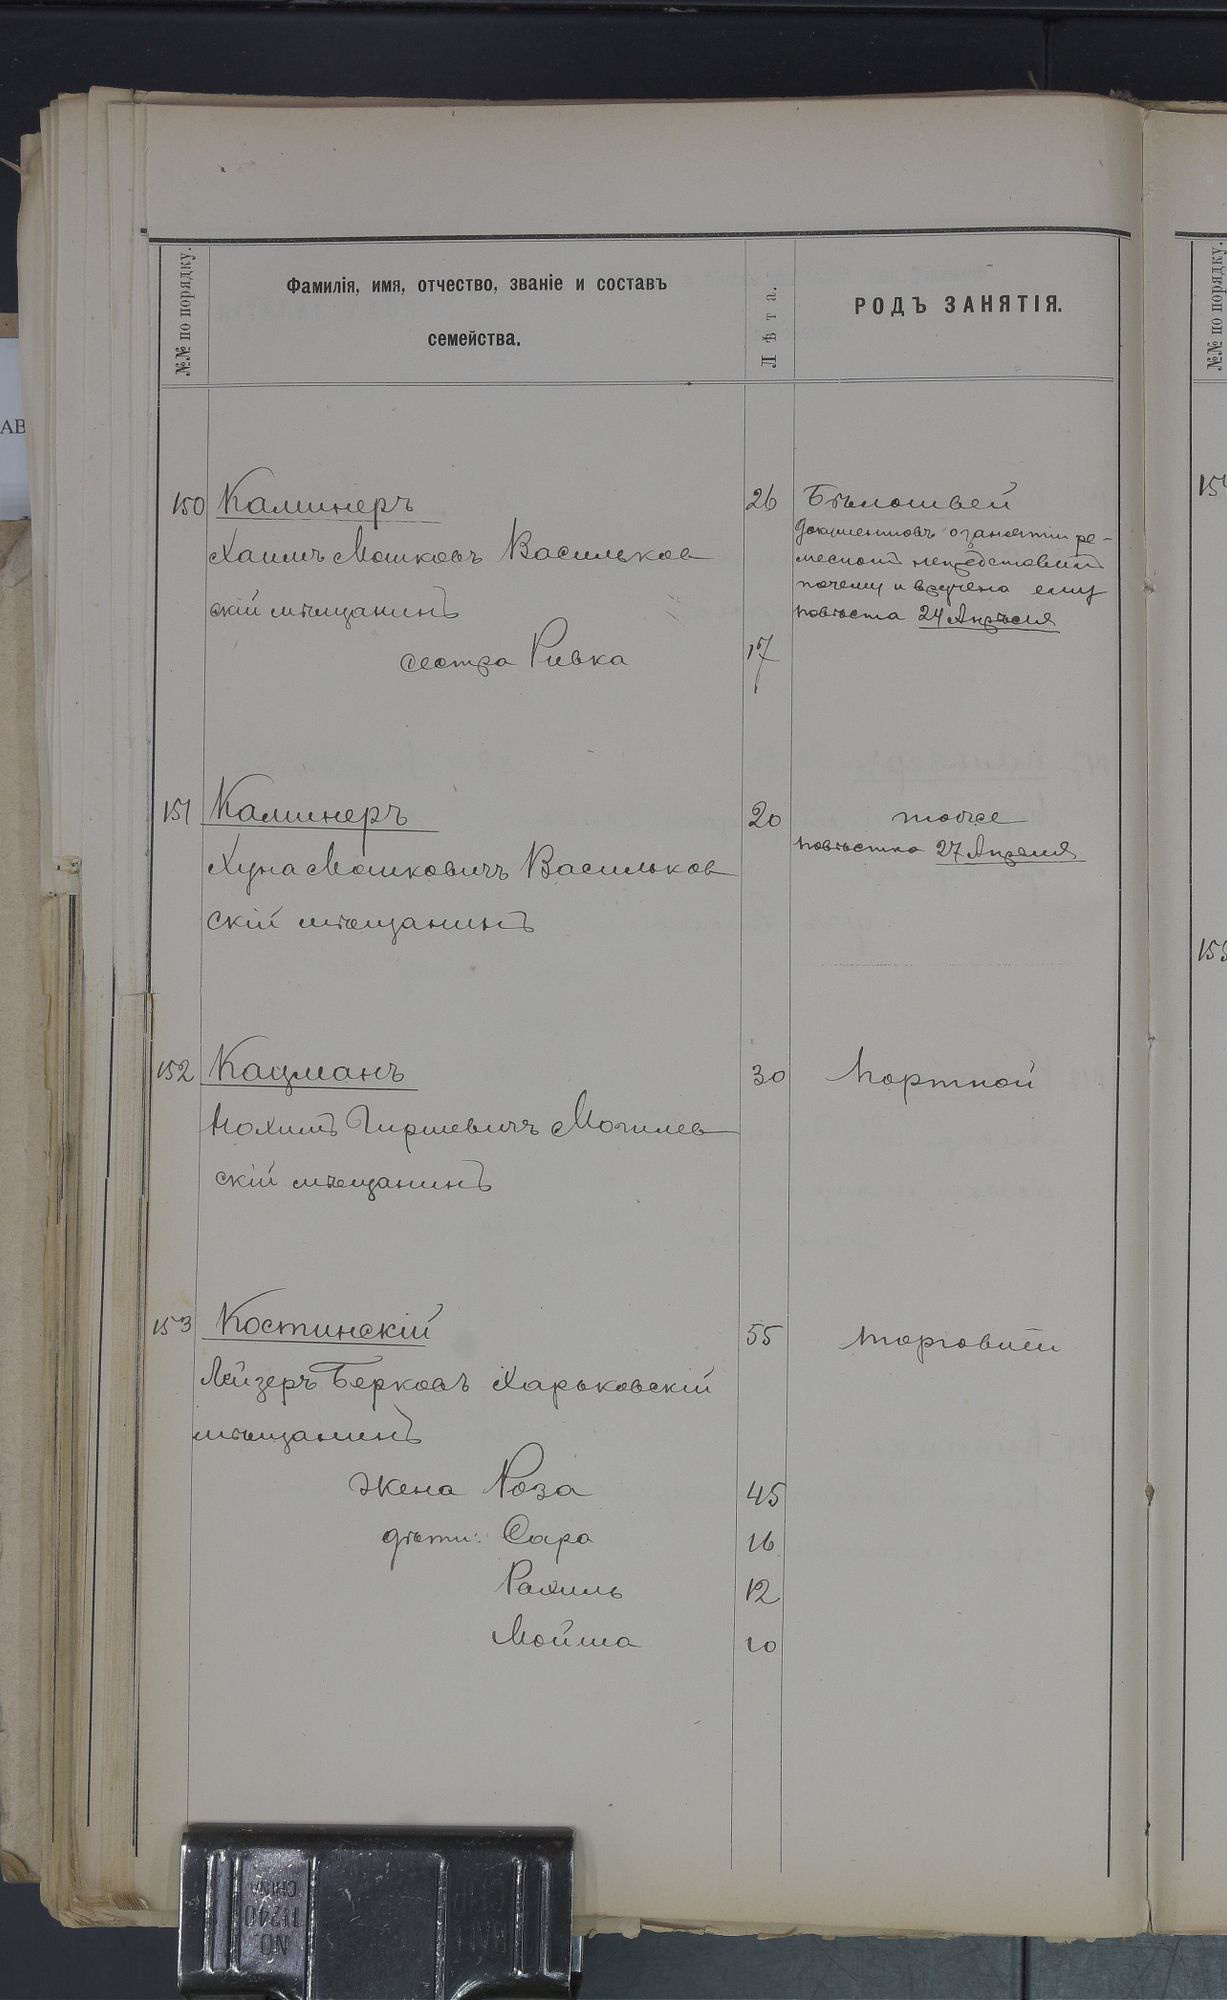 №№ по порядку.
Фамилія, имя, отчество, званіе и составъ
семейства.
Лѣта.
РОДЪ ЗАНЯТІЯ.
№№ по порядку.
150 Каминеръ 26 Бѣлошвей
Документовъ о занятіи ре-
Хаимъ Мошковъ Васильков
месломъ непредставилъ
почему и вручена ему
скій мѣщанинъ
повѣстка 24 Апрѣля
сестра Ривка 17
151 Каминеръ 20 тоже
повѣстка 27 Апреля
Хуна Мошковичъ Васильков
скій мѣщанинъ
152 Кацманъ 30 Портной
Нохимъ Гиршевичъ Могилев
скій мѣщанинъ
153 Костинскій 55 торговлей
Лейзеръ Берковъ Харьковскій
мѣщанинъ
жена Роза 45
дѣти: Сара 16
Рахиль 12
Мойша 10
АВ
NO
11240
CHINA